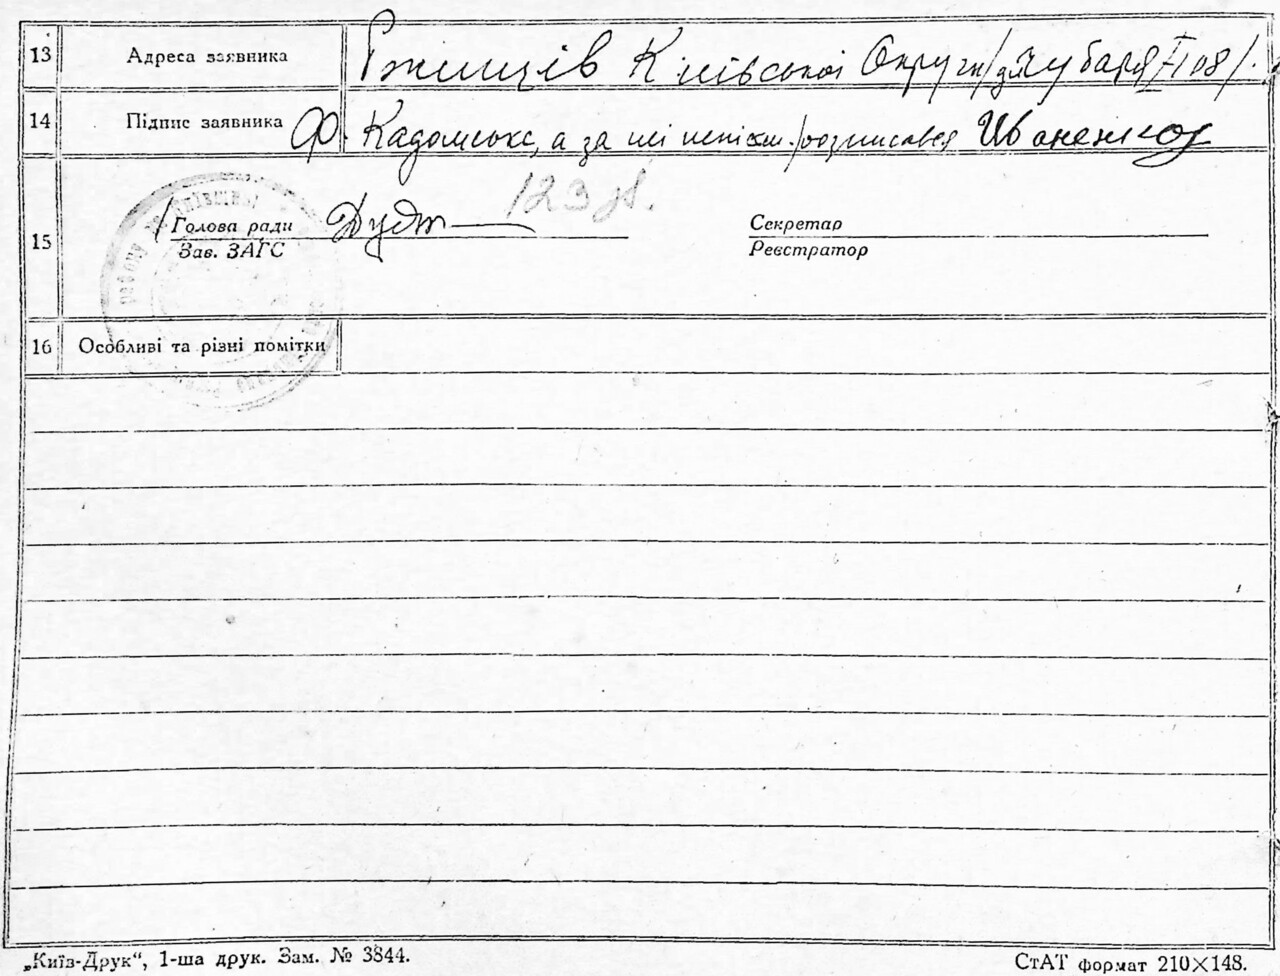 13 Адреса заявника Ржищів Київської Округи
14 Підпис заявника Ф. Кадомське, а за неї розписався Іваненко
123 зв.
Голова ради
Зав. ЗАГС
15
Секретар
Реєстратор
16 Особливі та різні помітки
„Київ-Друк“, 1-ша друк. Зам. № 3844.
СтАТ формат 210×148.